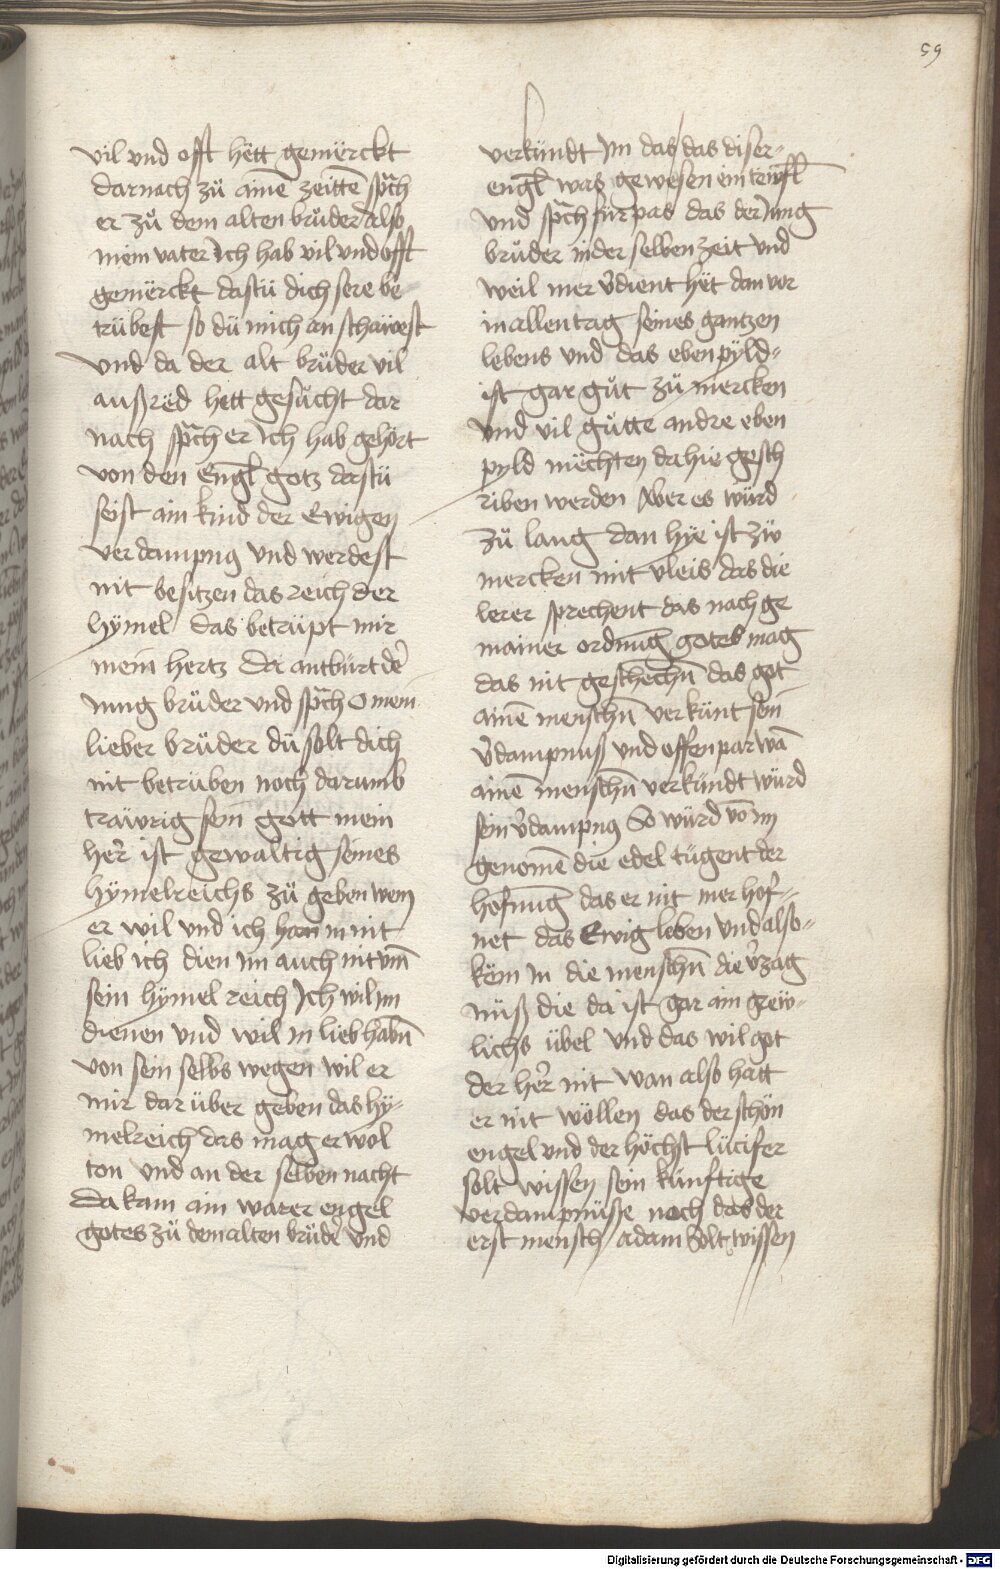 59
vil vnd offt hett gemërckt
darnach zů aine͂ zeitte͂ sp͂ch
er zů dem alten brůder also
mein vater Ich hab vil vnd offt
gemërckt dastü dich sere be
trübest so dü mich an schawest
vnd da der alt brůder vil
außrëd hett gesůcht dar
nach sp͂ch er Ich hab gehört
von den Engl͂ gotz dastü
seist ain kind der Ewigen
verdampng vnd werdest
nit besitzen das reich der
hÿmel das betrüpt mir
mein hertz Da antbürt de͛
iung brůder vnd sp͂ch O mein
lieber brůder dü solt dich
nit betrüben noch darumb
trawrig sein gott mein
he͛r ist gewaltig seines
hÿmelreichs zů geben wem
er wil vnd ich han in nit
lieb ich dien im auch nit vm͂
sein hÿmel reich Ich wil im
dienen vnd wil in lieb habn͂
von sein selbs wegen wil er
mir dar über geben das hÿ-
melreich das mag er wol
ton vnd an der selben nacht
da kam ain warer engel
gotes zů dem alten brůde͛ vnd
verkündt Im das das diser-
engl͂ was gewesen ein teüffl͂
vnd sp͂ch fürpas das der Iung
brůder in der selben zeit vnd
weil mer v͛dient hët dan vor
in allen tag seines gantzen
lebens vnd das ebenpÿld-
ist gar gůt zů mercken
vnd vil gůtte andre eben
pyld mëchten da hie gesch
riben werden Aber es würd
zů lang dan hye ist zü
mercken mit vleis das die
lerer sprechent das nach ge
mainer ordnug͂ gotes mag
das nit geschechn͂ das got
aine͂ menschn͂ verkünt sein
v͛dampnuß vnd offenpar wa͂
aine͂ menschn͂ verkündt würd
sein v͛dampng So würd vo͂ im
genome͂ die edel tügent der
hofnug͂ das er nit mer hof-
net das Ewig leben vnd also-
köm in die menschn͂ die v͛zag
nüß die da ist gar ain grew-
lichs übel vnd das wil got
der he͛r nit wan also hatt
er nit wöllen das der schön
engel vnd der höchst lücifer
solt wissen sein künftige
verdampnüße noch das der
erst mensch adam solt wissen
Digitalisierung gefördert durch die Deutsche Forschungsgemeinschaft - DFG